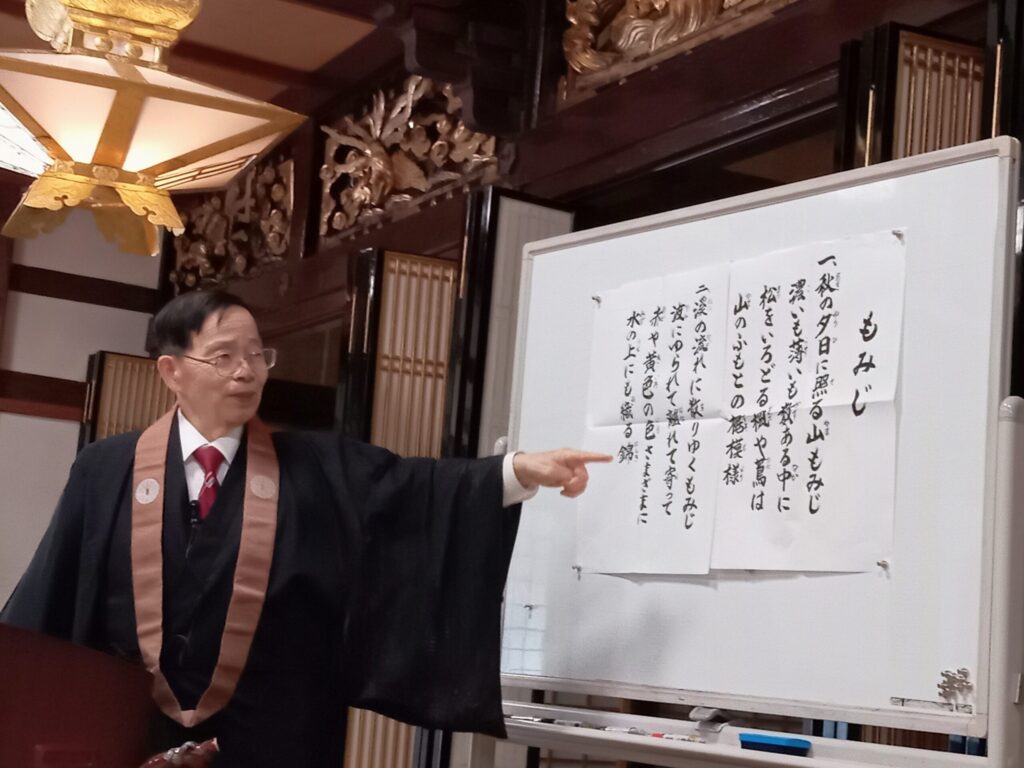 もみじ
一、秋の夕日に照る山もみじ
濃いも薄いも数ある中に
松をいろどる楓や蔦は
山のふもとの裾模様
二、溪の流れに散りゆくもみじ
波にゆられて離れて寄って
赤や黄色の色さまざまに
水の上にも織る錦